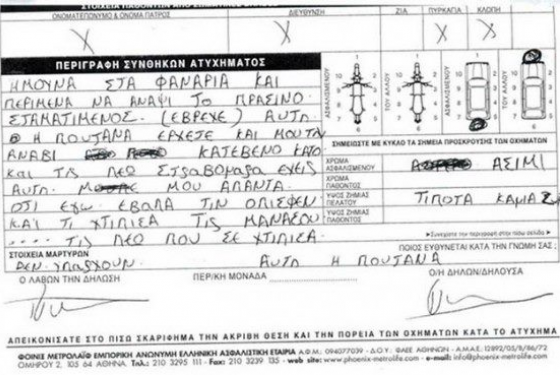 ΣΤΟΙΧΕΙΑ ΠΑΘΟΝΤΩΝ ΑΠΟ ΣΩΜΑΤΙΚΕΣ
ΟΝΟΜΑΤΕΠΩΝΥΜΟ & ΟΝΟΜΑ ΠΑΤΡΟΣ ΔΙΕΥΘΥΝΣΗ ΖΙΑ ΠΥΡΚΑΓΙΑ ΚΛΟΠΗ
X X X X
ΠΕΡΙΓΡΑΦΗ ΣΥΝΘΗΚΩΝ ΑΤΥΧΗΜΑΤΟΣ
ΗΜΟΥΝΑ ΣΤΑ ΦΑΝΑΡΙΑ ΚΑΙ
ΠΕΡΙΜΕΝΑ ΝΑ ΑΝΑΨΙ ΤΟ ΠΡΑΣΙΝΟ
ΣΤΑΜΑΤΙΜΕΝΟΣ (ΕΒΡΕΧΕ) ΑΥΤΗ
Η ΠΟΥΤΑΝΑ ΕΡΧΕΤΕ ΚΑΙ ΜΟΥΤΗ
ΑΝΑΒΙ ΚΑΤΕΒΕΝΟ ΚΑΤΟ
ΚΑΙ ΤΙΣ ΛΕΟ ΣΤΡΑΒΟΜΑΡΑ ΕΧΕΙΣ
ΑΥΤΗ ΜΟΥ ΑΠΑΝΤΑ
ΟΤΙ ΕΧΩ ΕΒΑΛΑ ΤΙΝ ΟΠΙΣΘΕΝ
ΚΑΙ ΤΙ ΧΤΙΠΙΣΑ ΤΙΣ ΜΑΝΑΣΟΥ
.... ΤΙΣ ΛΕΟ ΠΟΥ ΣΕ ΧΤΙΠΙΣΑ
ΑΣΦΑΛΙΣΜΕΝΟΥ ΤΟΥ ΑΛΛΟΥ ΑΣΦΑΛΙΣΜΕΝΟΥ ΤΟΥ ΑΛΛΟΥ
ΣΗΜΕΙΩΣΤΕ ΜΕ ΚΥΚΛΟ ΤΑ ΣΗΜΕΙΑ ΠΡΟΣΚΡΟΥΣΗΣ ΤΩΝ ΟΧΗΜΑΤΩΝ
ΧΡΩΜΑ ΑΣΦΑΛΙΣΜΕΝΟΥ ΑΣΙΜΙ
ΧΡΩΜΑ ΠΑΘΟΝΤΟΣ
ΥΨΟΣ ΖΗΜΙΑΣ ΠΕΛΑΤΟΥ ΤΙΠΟΤΑ ΚΑΜΙΑ
ΥΨΟΣ ΖΗΜΙΑΣ ΠΑΘΟΝΤΟΣ
Συνεχίστε την περιγραφή στην πίσω σελίδα
ΣΤΟΙΧΕΙΑ ΜΑΡΤΥΡΩΝ ΠΟΙΟΣ ΕΥΘΥΝΕΤΑΙ ΚΑΤΑ ΤΗΝ ΓΝΩΜΗ ΣΑΣ
ΔΕΝ ΥΠΑΡΧΟΥΝ ΑΥΤΗ Η ΠΟΥΤΑΝΑ
Ο ΛΑΒΩΝ ΤΗΝ ΔΗΛΩΣΗ ΠΕΡ/ΚΗ ΜΟΝΑΔΑ Ο/Η ΔΗΛΩΝ/ΔΗΛΟΥΣΑ
ΑΠΕΙΚΟΝΙΣΑΤΕ ΣΤΟ ΠΙΣΩ ΣΚΑΡΙΦΗΜΑ ΤΗΝ ΑΚΡΙΒΗ ΘΕΣΗ ΚΑΙ ΤΗΝ ΠΟΡΕΙΑ ΤΩΝ ΟΧΗΜΑΤΩΝ ΚΑΤΑ ΤΟ ΑΤΥΧΗΜΑ
ΦΟΙΝΙΞ ΜΕΤΡΟΛΑΪΦ ΕΜΠΟΡΙΚΗ ΑΝΩΝΥΜΗ ΕΛΛΗΝΙΚΗ ΑΣΦΑΛΙΣΤΙΚΗ ΕΤΑΙΡΙΑ Α.Φ.Μ.: 094077039 - Δ.Ο.Υ.: ΦΑΕΕ ΑΘΗΝΩΝ - Α.Μ.Α.Ε. 12892/05/Β/86/72
ΟΜΗΡΟΥ 2, 105 64 ΑΘΗΝΑ Τηλ.: 210 3295 111 - Fax: 210 3239 135 - web site: www.phoenix-metrolife.com - e-mail: info@phoenix-metrolife.com